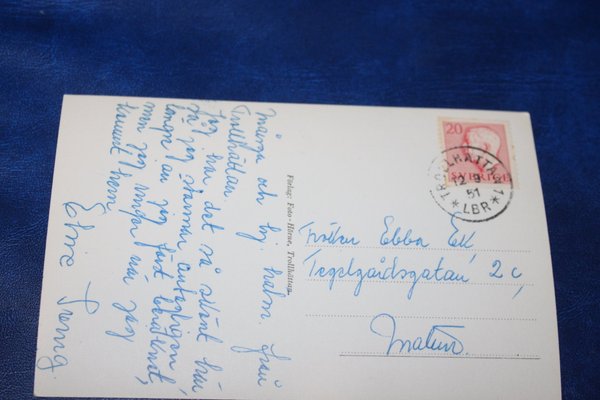 Många och hj. hälsn. från
Trollhättan.
Jag har det så skönt här
så jag stannar antagligen
längre än jag först beräknat,
men jag ringer när jag
kommit hem.
Förlag: Foto-Hörne, Trollhättan.
20
SVERIGE
TROLLHÄTTAN 1
12 9
51
* LBR *
Fröken Ebba Ek,
Tegelgårdsgatan 2 c,
Malmö.